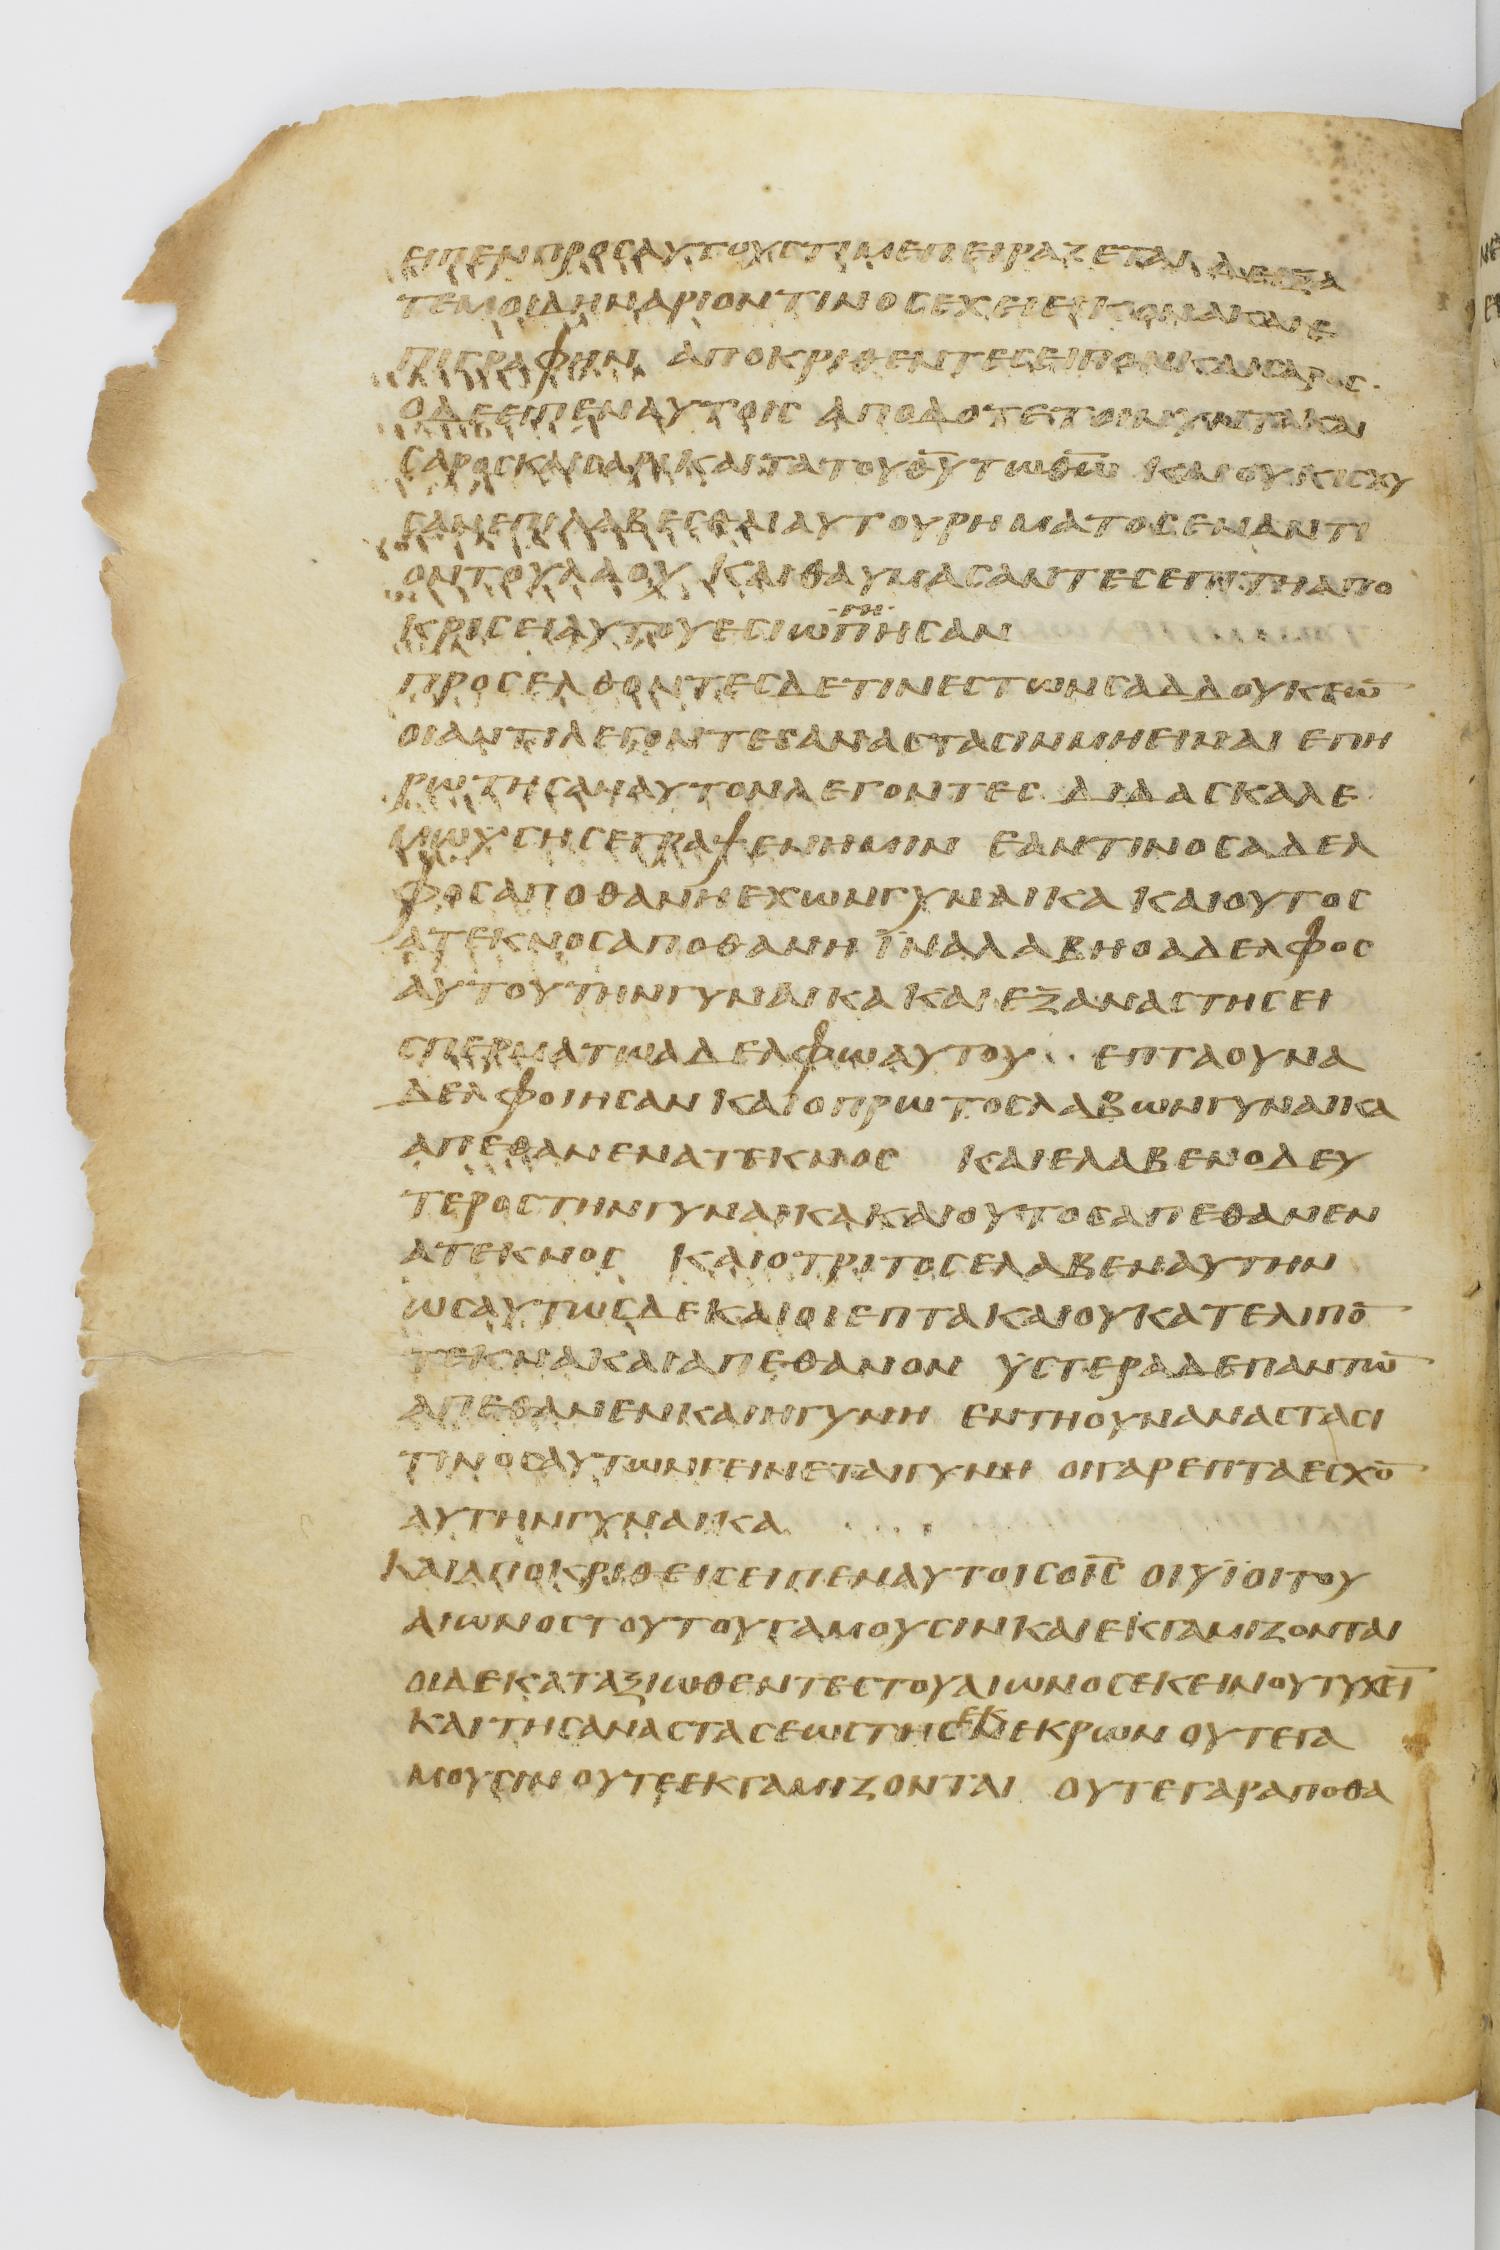 ειπενπροσαυτουςτιμεπειραζεται δειξα
τεμοιδηναριοντινοσεχειεικονακαιε
πιγραφην αποκριθεντεςειπονκαισαρος
οδεειπεναυτοις αποδοτετοινυντακαι
σαροςκαισαρικαιτατουθ̅υ̅τωθ̅ω̅ καιουκισχυ
σανεπιλαβεσθαιαυτουρηματοςεναντι
οντουλαου καιθαυμασαντεςεπιτηαπο
κρισειαυτουεσιωπησαν
προσελθοντεςδετινεςτωνσαδδουκεω̅
οιαντιλεγοντεςαναστασινμηειναι επη
ρωτησαναυτονλεγοντες διδασκαλε
μωϋσησεγραψενημιν εαντινοσαδελ
φοσαποθανηεχωνγυναικα καιουτος
ατεκνοσαποθανη ϊναλαβηοαδελφος
αυτουτηνγυναικα καιεξαναστησει
σπερματωαδελφωαυτου . επταουνα
δελφοιησαν καιοπρωτοσλαβωνγυναικα
απεθανενατεκνος καιελαβενοδευ
τεροστηνγυναικακαιουτοσαπεθανεν
ατεκνος καιοτριτοσελαβεναυτην
ωσαυτωσδεκαιοιεπτακαιουκατελιπο̅
τεκνακαιαπεθανον ϋστεραδεπαντω̅
απεθανενκαιηγυνη εντηουναναστασι
τινοσαυτωνγεινεταιγυνη οιγαρεπταεσχο̅
αυτηνγυναικα
καιαποκριθεισειπεναυτοισοι̅ς̅ οιυϊοιτου
αιωνοςτουτουγαμουσινκαιεκγαμιζονται
οιδεκαταξιωθεντεστουαιωνοσεκεινουτυχει̅
καιτησαναστασεωστησεκνεκρων ουτεγα
μουσινουτεεκγαμιζονται ουτεγαραποθα